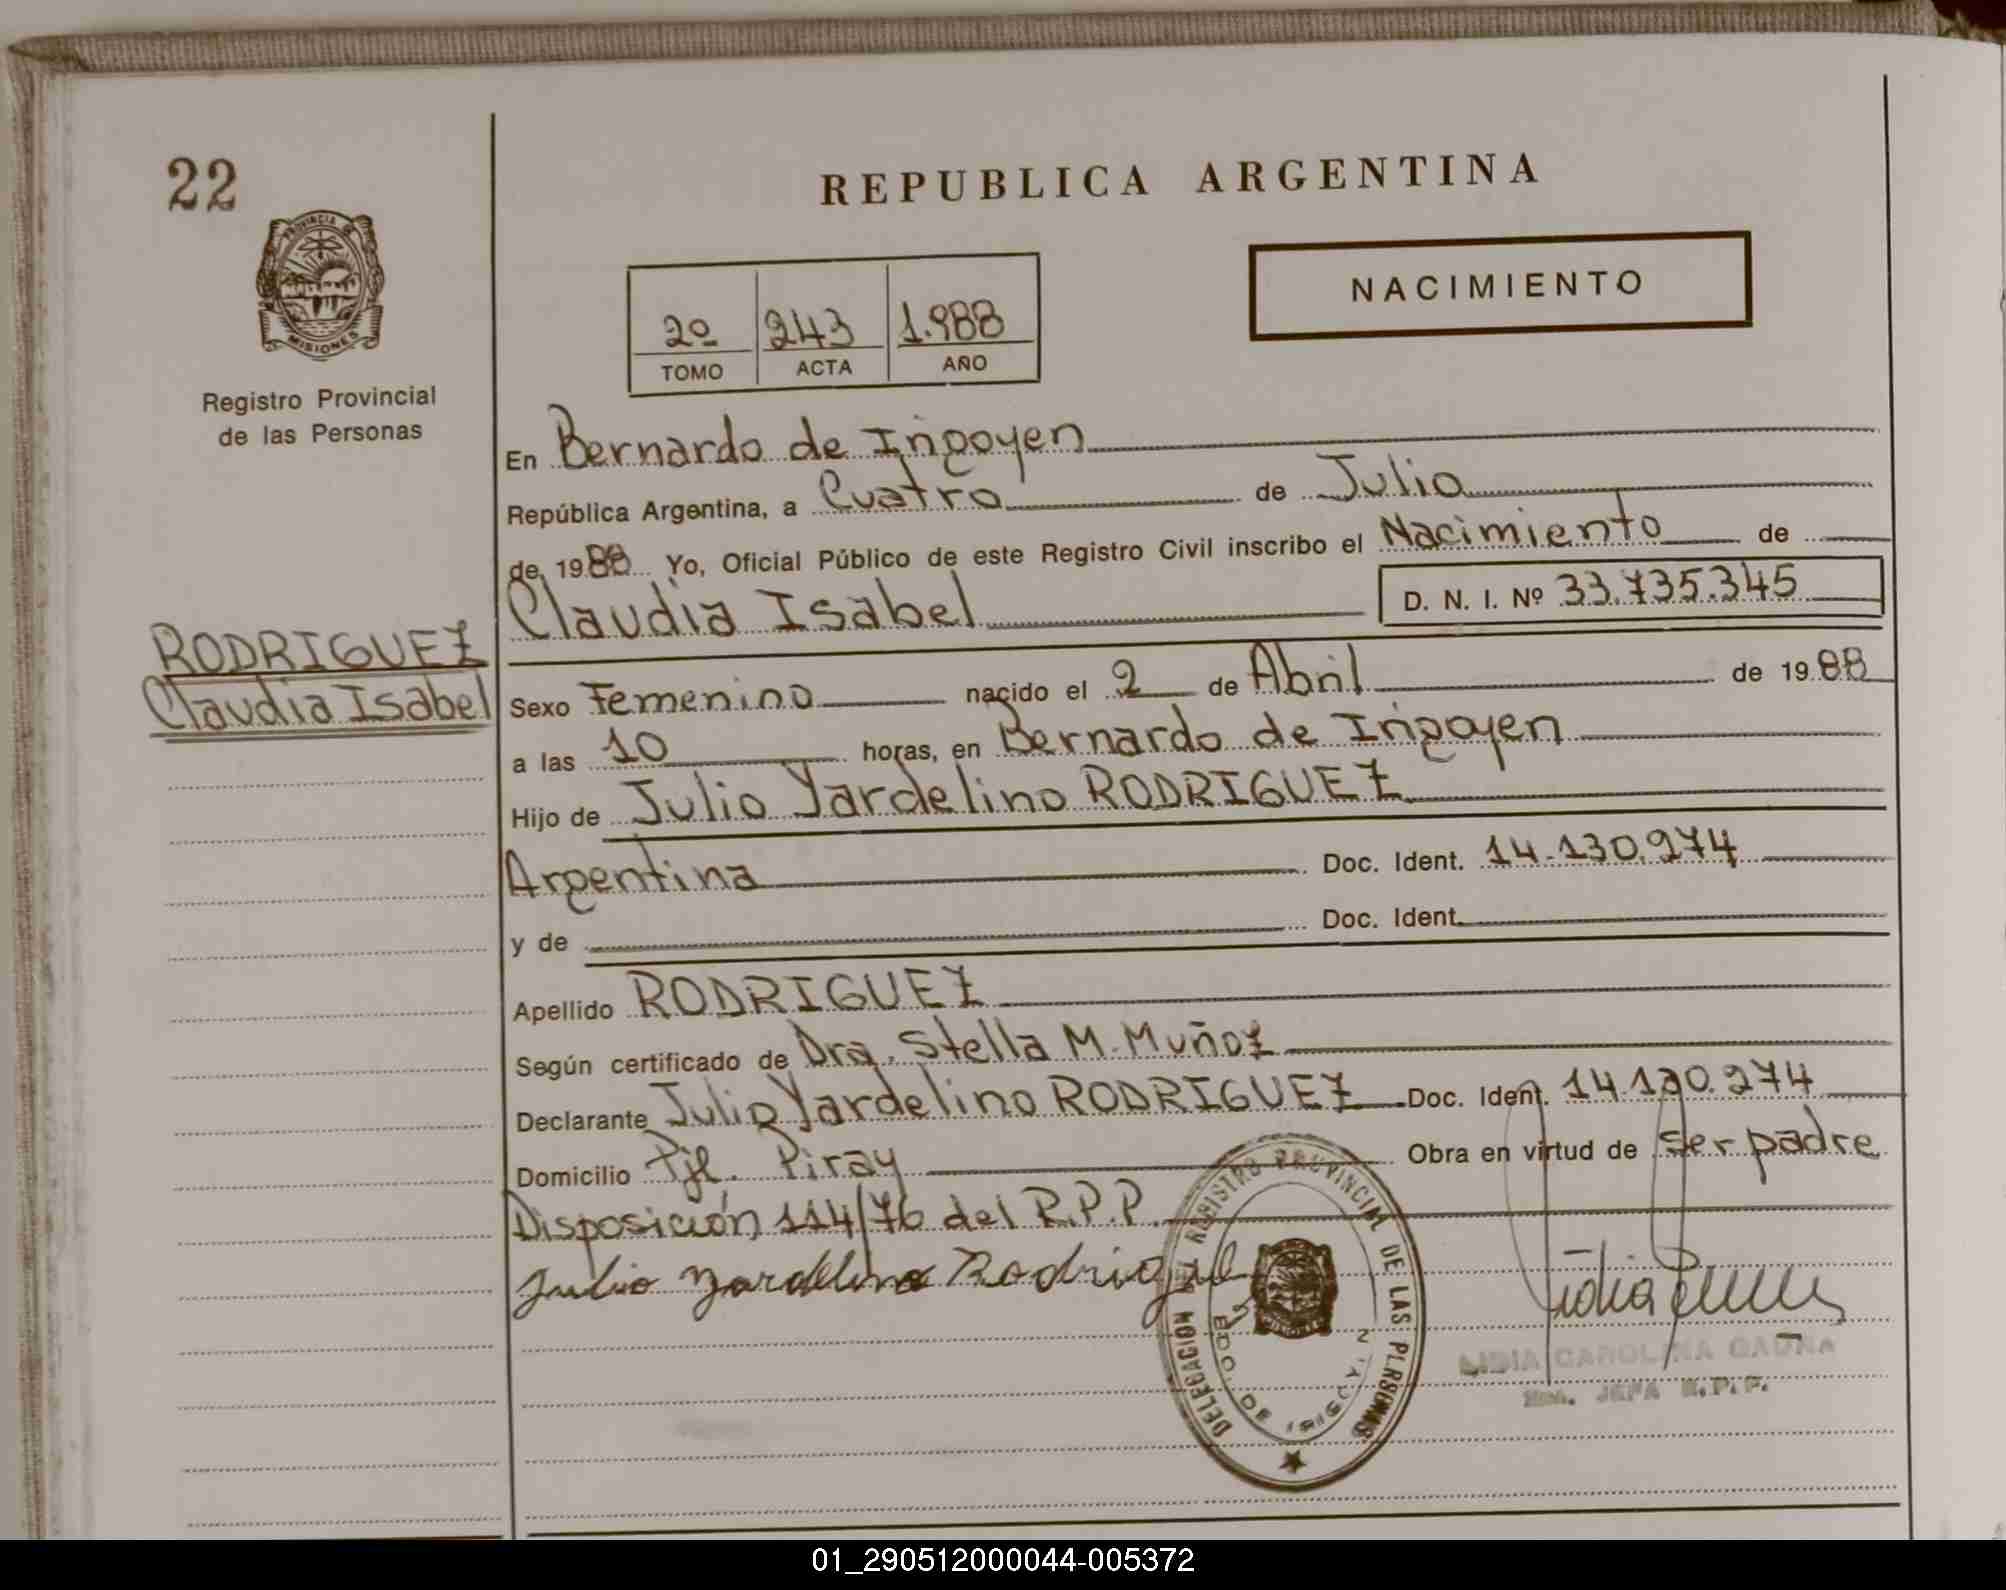 22
REPUBLICA ARGENTINA
PROVINCIA DE
MISIONES
NACIMIENTO
2º 243 1.988
TOMO ACTA AÑO
Registro Provincial
de las Personas
En Bernardo de Irigoyen
República Argentina, a Cuatro de Julio
de 1988 Yo, Oficial Público de este Registro Civil inscribo el Nacimiento de
Claudia Isabel D. N. I. Nº 33.735.345
RODRIGUEZ
Claudia Isabel
Sexo Femenino nacido el 2 de Abril de 1988
a las 10 horas, en Bernardo de Irigoyen
Hijo de Julio Yardelino RODRIGUEZ
Argentina Doc. Ident. 14.130.274
y de Doc. Ident.
Apellido RODRIGUEZ
Según certificado de Dra. Stella M. Muñoz
Declarante Julio Yardelino RODRIGUEZ Doc. Ident. 14.130.274
Domicilio Pje. Piray Obra en virtud de ser padre
Disposición 114/76 del R.P.P.
Julio Yardelino Rodriguez
DELEGACION DEL REGISTRO PROVINCIAL DE LAS PERSONAS
BDO. DE IRIGOYEN
MISIONES
LIDIA CAROLINA GAUNA
JEFA R.P.P.
01_290512000044-005372